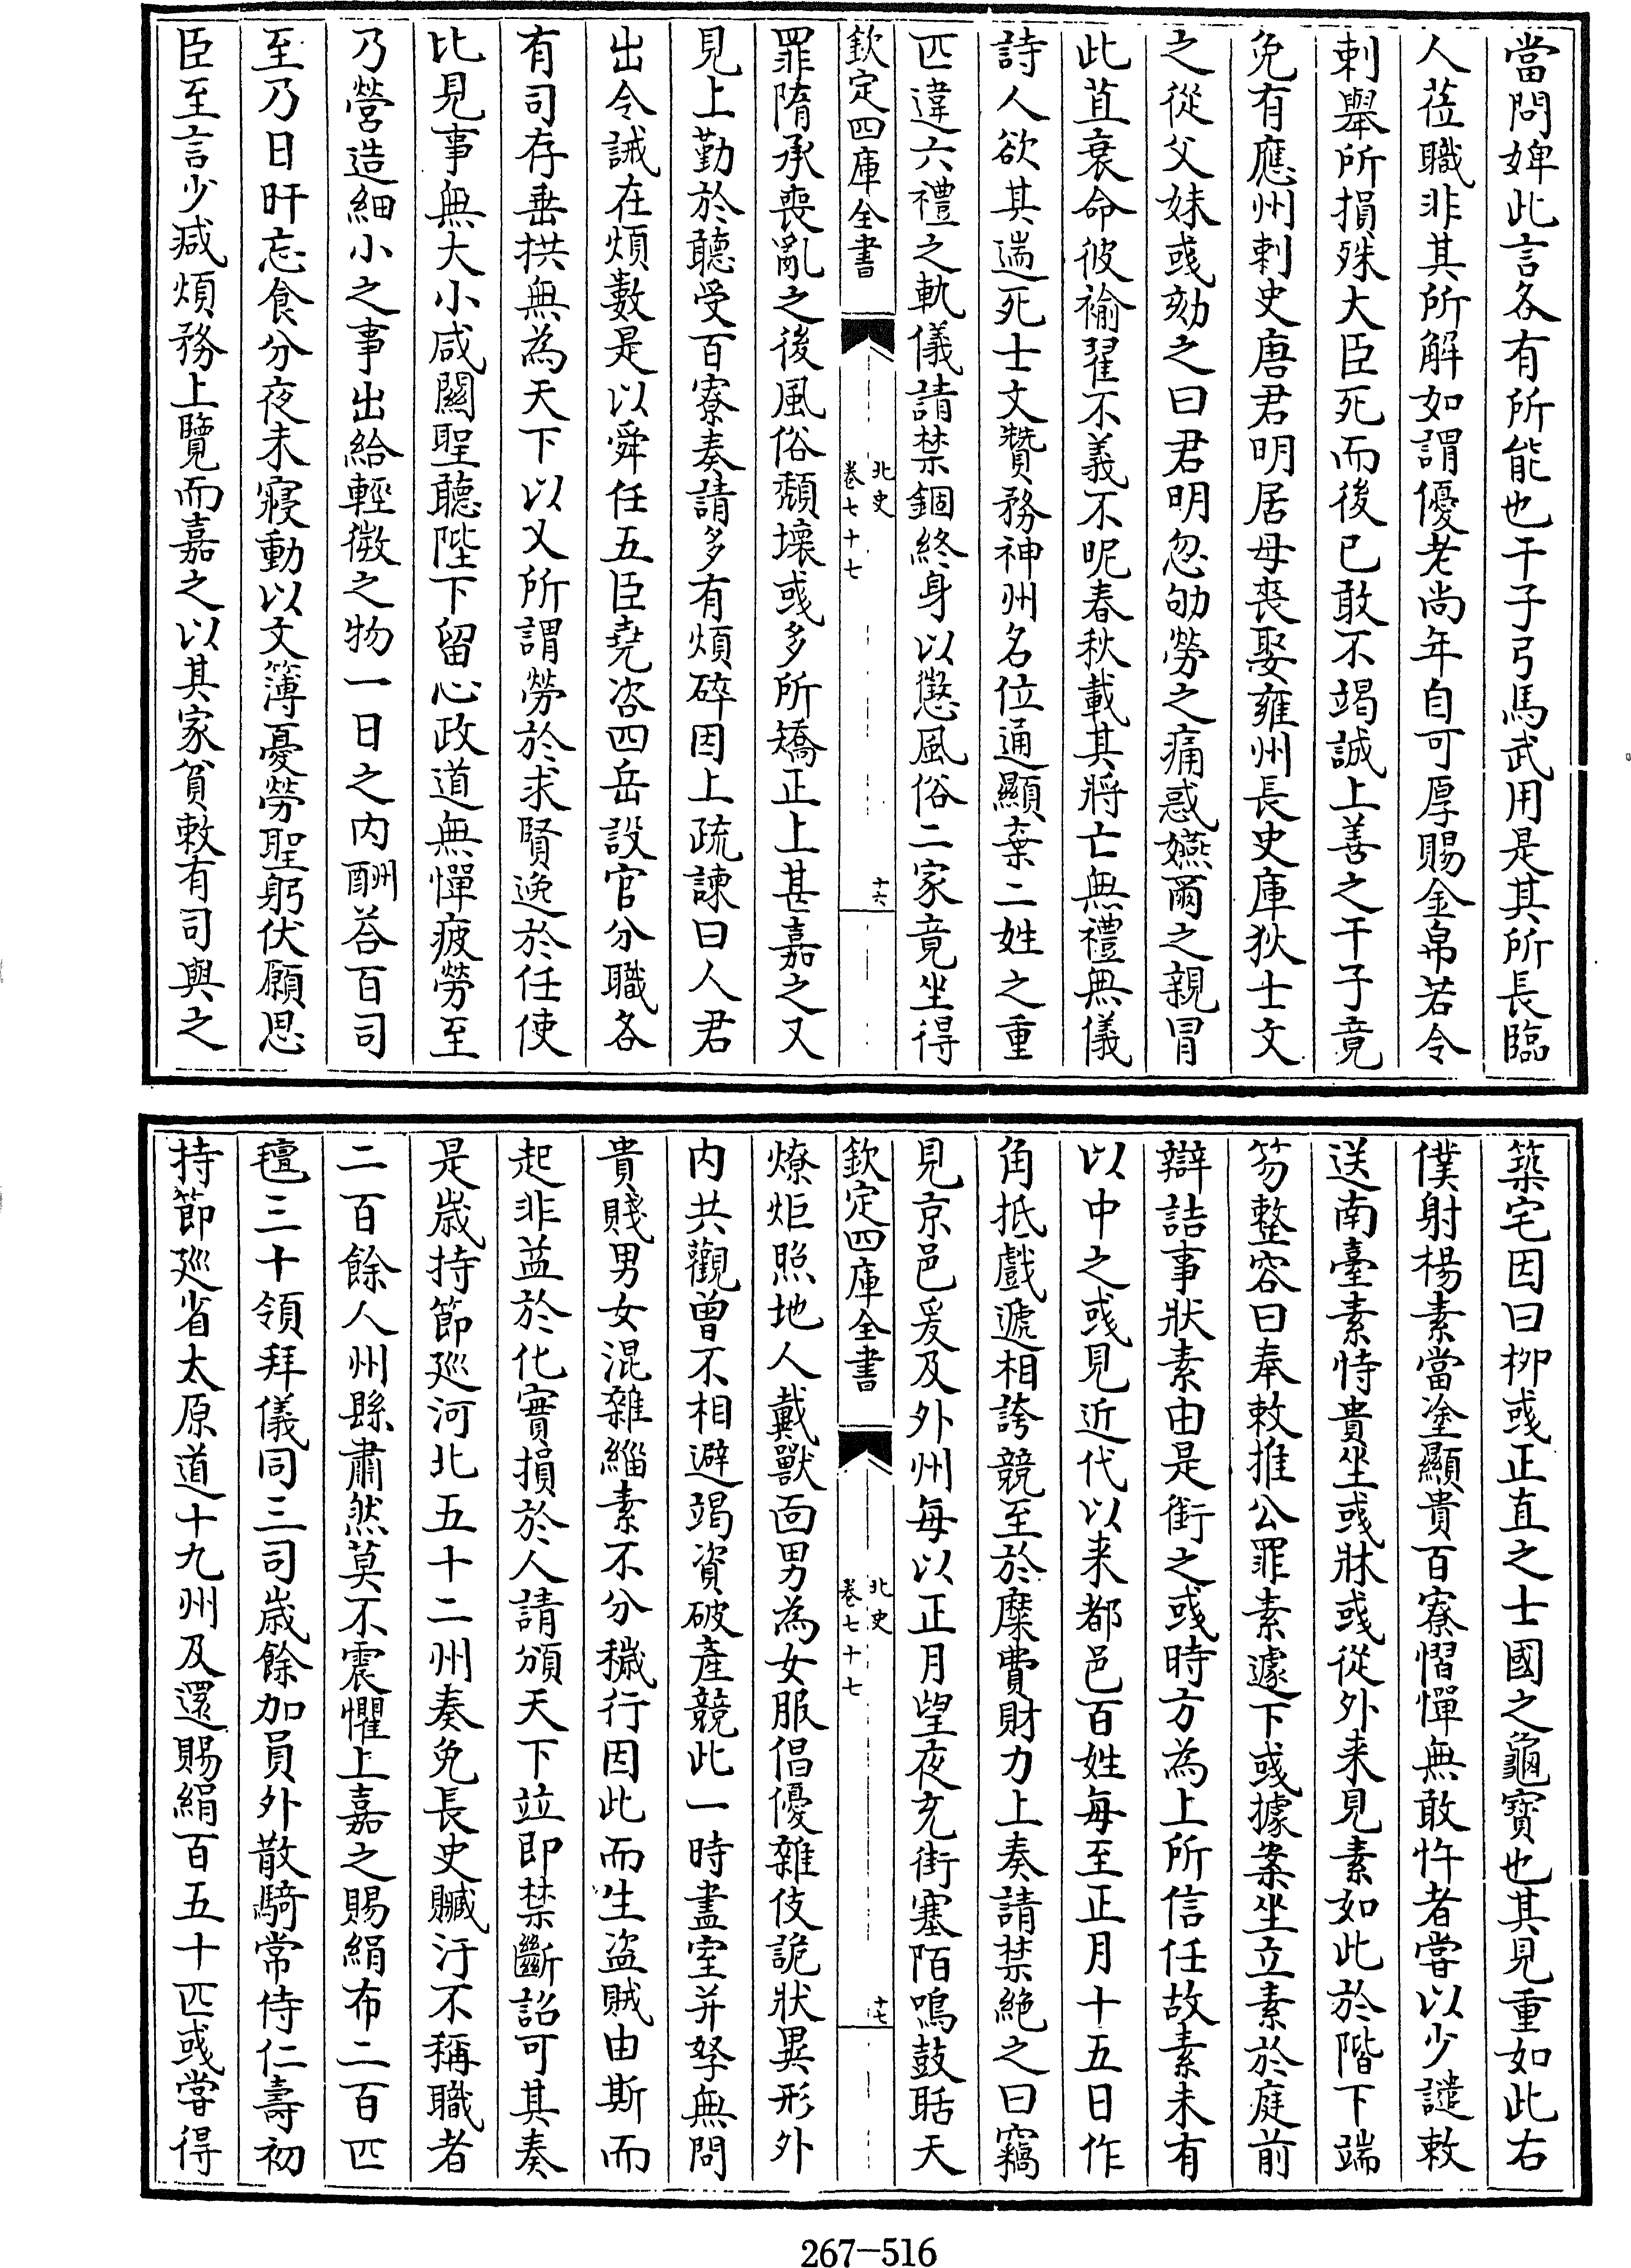 當問婢此言各有所能也干子弓馬武用是其所長臨
人莅職非其所解如謂優老尚年自可厚賜金帛若令
刺舉所損殊大臣死而後已敢不竭誠上善之干子竟
免有應州刺史唐君明居母喪娶雍州長史庫狄士文
之從父妹彧劾之曰君明忽劬勞之痛惑嬿爾之親冒
此苴衰命彼褕翟不義不昵春秋載其將亡無禮無儀
詩人欲其遄死士文贊務神州名位通顯棄二姓之重
匹違六禮之軌儀請禁錮終身以懲風俗二家竟坐得
欽定四庫全書
北史
卷七十七
十六
罪隋承喪亂之後風俗頹壞彧多所矯正上甚嘉之又
見上勤於聽受百寮奏請多有煩碎因上疏諫曰人君
出令誡在煩數是以舜任五臣堯咨四岳設官分職各
有司存垂拱無為天下以乂所謂勞於求賢逸於任使
比見事無大小咸關聖聽陛下留心政道無憚疲勞至
乃營造細小之事出給輕微之物一日之内酬荅百司
至乃日旰忘食分夜未寢動以文簿憂勞聖躬伏願思
臣至言少減煩務上覽而嘉之以其家貧敕有司與之
築宅因曰柳彧正直之士國之龜寶也其見重如此右
僕射楊素當塗顯貴百寮慴憚無敢忤者嘗以少譴敕
送南臺素恃貴坐彧牀彧從外來見素如此於階下端
笏整容曰奉敕推公罪素遽下彧據案坐立素於庭前
辯詰事狀素由是銜之彧時方為上所信任故素未有
以中之彧見近代以来都邑百姓每至正月十五日作
角抵戲遞相誇競至於糜費財力上奏請禁絶之曰竊
見京邑爰及外州每以正月望夜充街塞陌鳴鼓聒天
欽定四庫全書
北史
卷七十七
十七
燎炬照地人戴獸面男為女服倡優雜伎詭狀異形外
内共觀曾不相避竭資破產競此一時盡室并孥無問
貴賤男女混雜緇素不分穢行因此而生盜賊由斯而
起非益於化實損於人請頒天下竝即禁斷詔可其奏
是歲持節巡河北五十二州奏免長史贓汙不稱職者
二百餘人州縣肅然莫不震懼上嘉之賜絹布二百匹
氊三十領拜儀同三司歲餘加員外散騎常侍仁壽初
持節巡省太原道十九州及還賜絹百五十匹彧嘗得
267-516